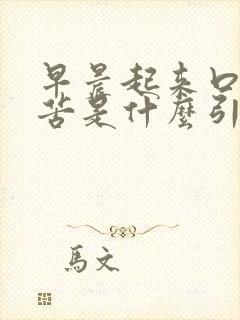 早晨起来口
苦是什麼引
馬文